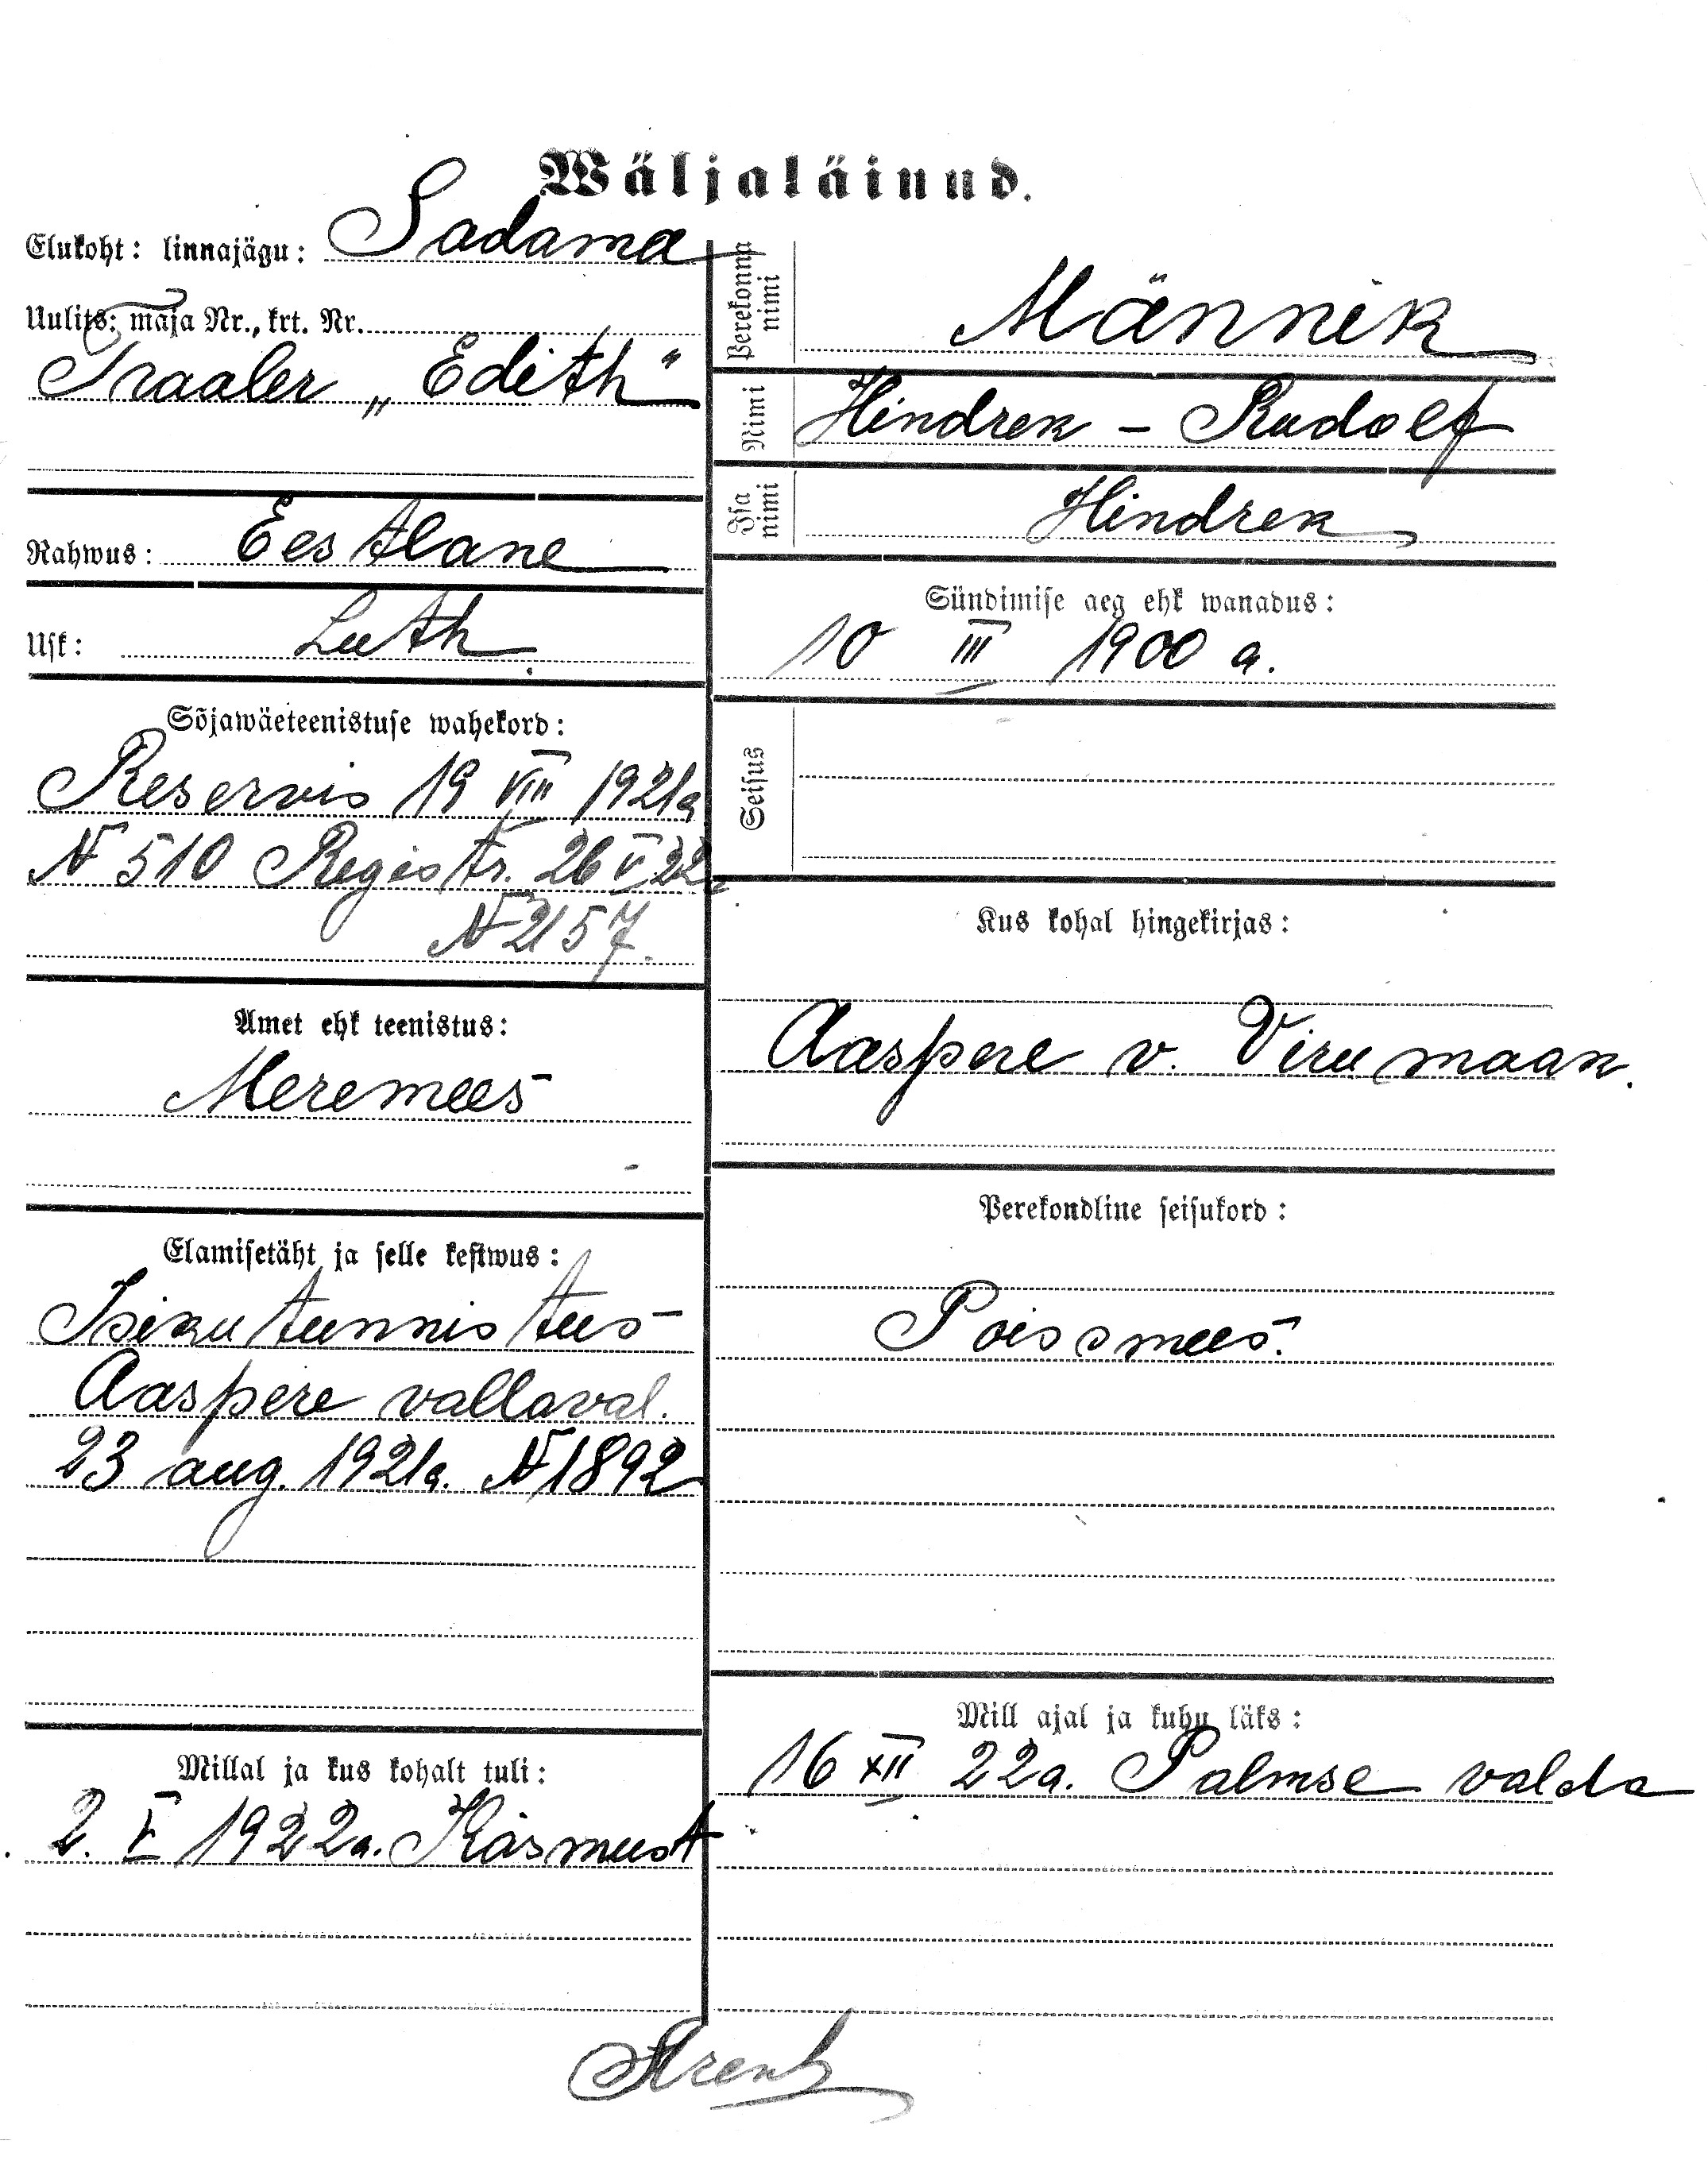 Wäljaläinud.
Elukoht: linnajägu: Sadama
Uulits: maja Nr., krt. Nr.
Traaler „Edith“
Rahwus: Eestlane
Usk: Luth.
Sõjawäeteenistuse wahekord:
Reservis 19 VIII 1921a
№ 510 Registr. 26 V 22a.
№ 2157.
Amet ehk teenistus:
Meremees
Elamisetäht ja selle kestwus:
Isikutunnistus
Aaspere vallaval.
23 aug. 1921a. № 1892
Millal ja kus kohalt tuli:
2. V 1922a. Käsmust
Perekonna nimi
Männik
Nimi
Hindrek - Rudolf
Isa nimi
Hindrek
Sündimise aeg ehk wanadus:
10 III 1900 a.
Seisus
Kus kohal hingekirjas:
Aaspere v. Virumaak.
Perekondline seisukord:
Poissmees.
Mill ajal ja kuhu läks:
16 XII 22a. Palmse valda